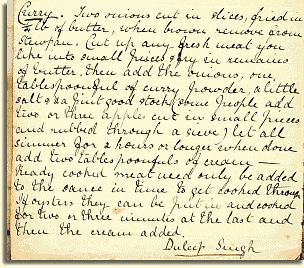 Curry. Two onions cut in slices, fried in
¼ lb of butter, when brown remove from
stewpan. Cut up any fresh meat you
like into small pieces & fry in remains
of butter, then add the onions, one
tablespoonful of curry powder, a little
salt & a ½ pint good stock, some people add
two or three apples cut in small pieces
and rubbed through a sieve) let all
simmer for 2 hours or longer when done
add two tablespoonfuls of cream —
Ready cooked meat need only be added
to the sauce in time to get cooked through
If oysters they can be put in and cooked
for two or three minutes at the last and
then the cream added.
Duleep Singh